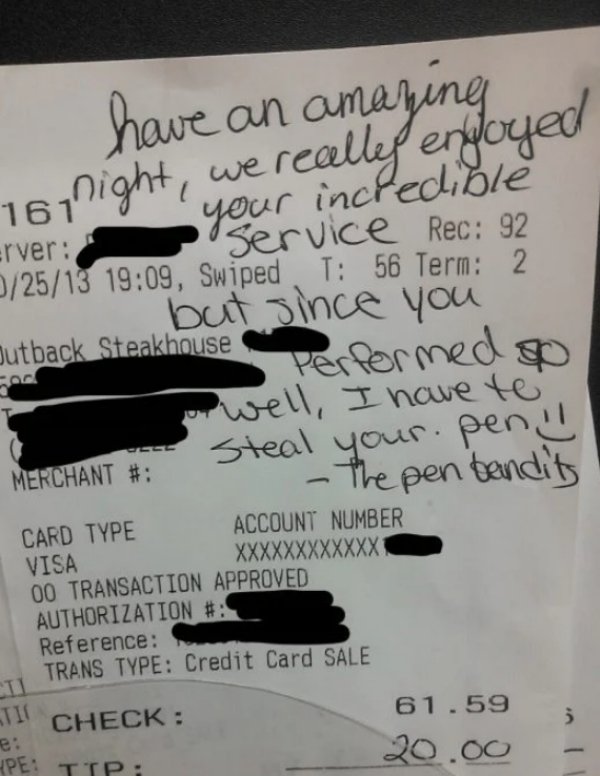 have an amazing
night, we really enjoyed
161 your incredible
rver: service Rec: 92
/25/13 19:09, Swiped T: 56 Term: 2
but since you
utback Steakhouse
Performed so
well, I have to
steal your. pen
MERCHANT #: - The pen bandits
CARD TYPE ACCOUNT NUMBER
VISA XXXXXXXXXXXX
00 TRANSACTION APPROVED
AUTHORIZATION #:
Reference:
TRANS TYPE: Credit Card SALE
CHECK: 61.59
e:
YPE: TIP: 20.00